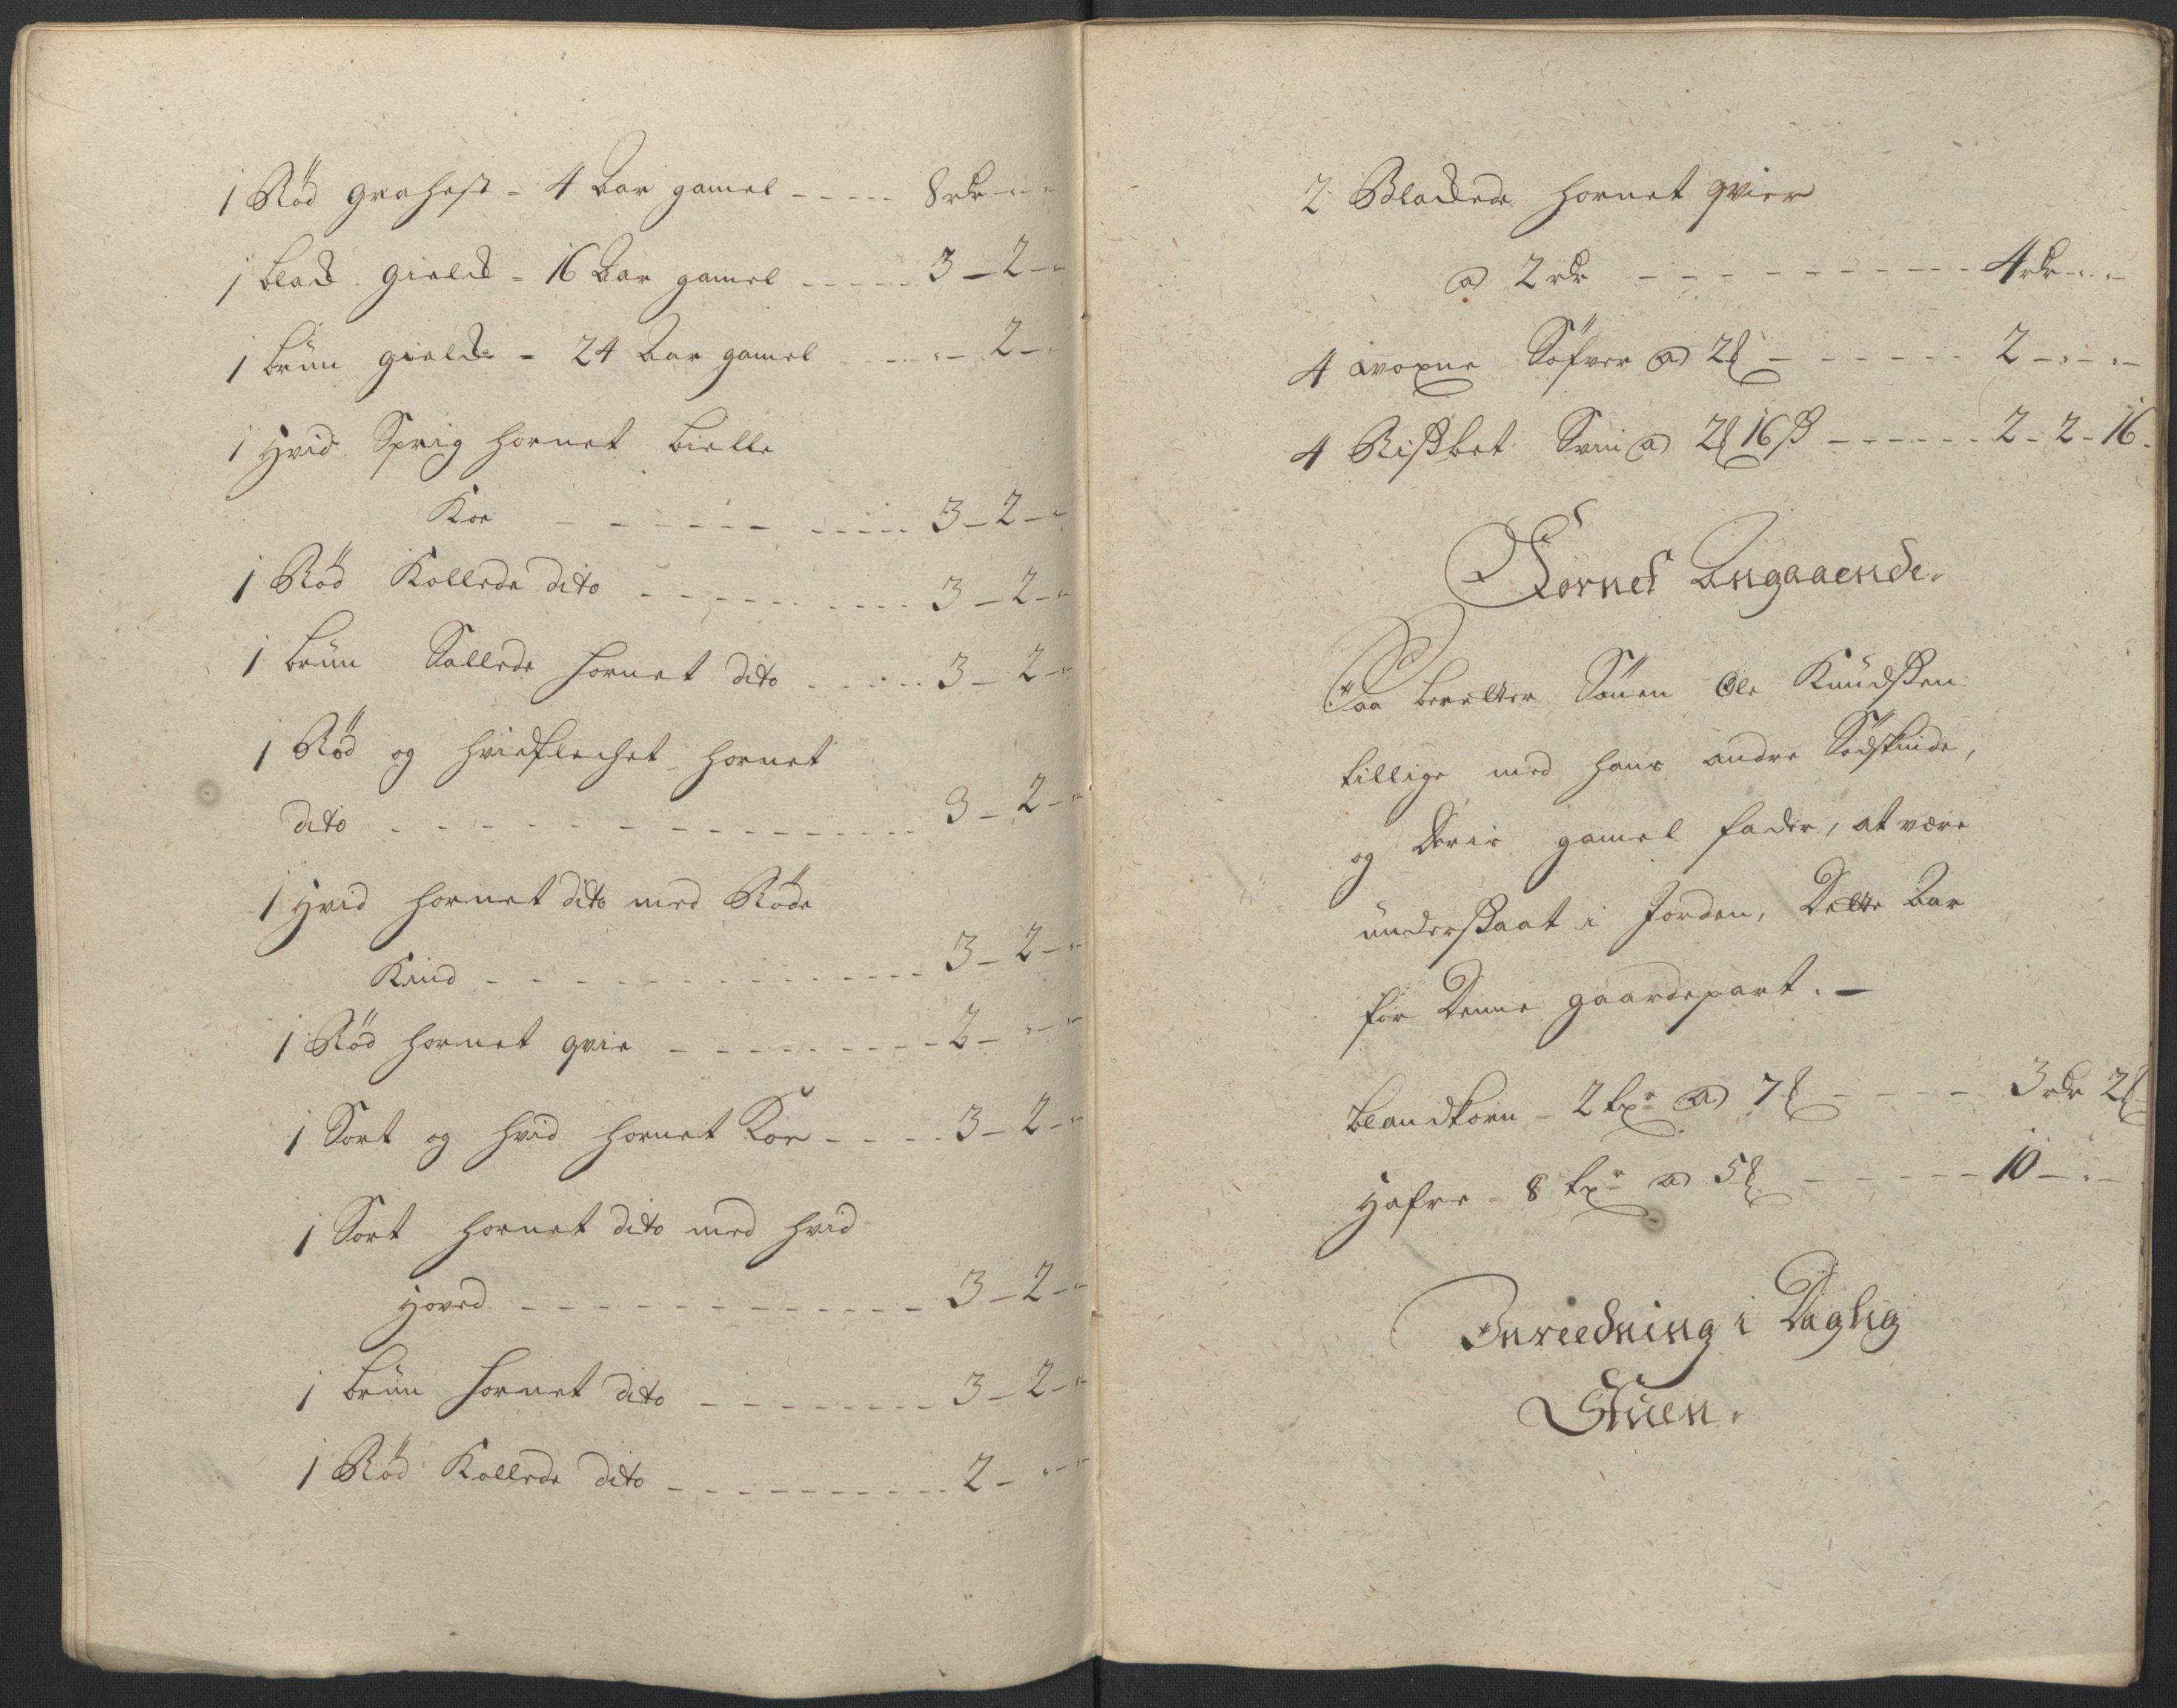 1 Rød grahest - 4 Aar gamel - - - - - 8 rdr - " - "
1 blak gield - 16 Aar gamel - - - - - 3 - 2 - "
1 brun gield - 24 Aar gamel - - - " - 2 - "
1 Hvid Sprig hornet bielle
Koe - - - - - - - - - - 3 - 2 - "
1 Rød Kollede dito - - - - - - - - - 3 - 2 - "
1 brun hornet dito - - - - - 3 - 2 - "
1 Rød og hvidflechet hornet
dito - - - - - - - - - - - - 3 - 2 - "
1 Hvid hornet dito med Røde
Kind - - - - - - - - - - - 3 - 2 - "
1 Rød hornet qvie - - - - - - - 2 - " - "
1 Sort og hvid hornet Koe - - - - 3 - 2 - "
1 Sort hornet dito med hvid
Hoved - - - - - - - - - - - 3 - 2 - "
1 brun hornet dito - - - - - - - - 3 - 2 - "
1 Rød Kollede dito - - - - - - - - - 2 - " - "
2 Blakkede hornet qvier
a 2 rdr - - - - - - - - - 4 rdr - " - "
4 voxne Søfver a 2 - - - - - - 2 - " - "
4 Svin a 2 16 ß - - - - - - 2 - 2 - 16
Kornet Angaaende.
Saa beretter Sönen Ole Knudssen
tillige med hans andre Södskinde,
og deris gamel fader, at være
underskaat i Jorden, Dette Aar
for Denne gaardepart. -
blandkorn - 2 a 7 - - - - 3 rdr 2
Hafre - 8 a 5 - - - - - 10 - " -
Inreedning i Daglig
Stuen.